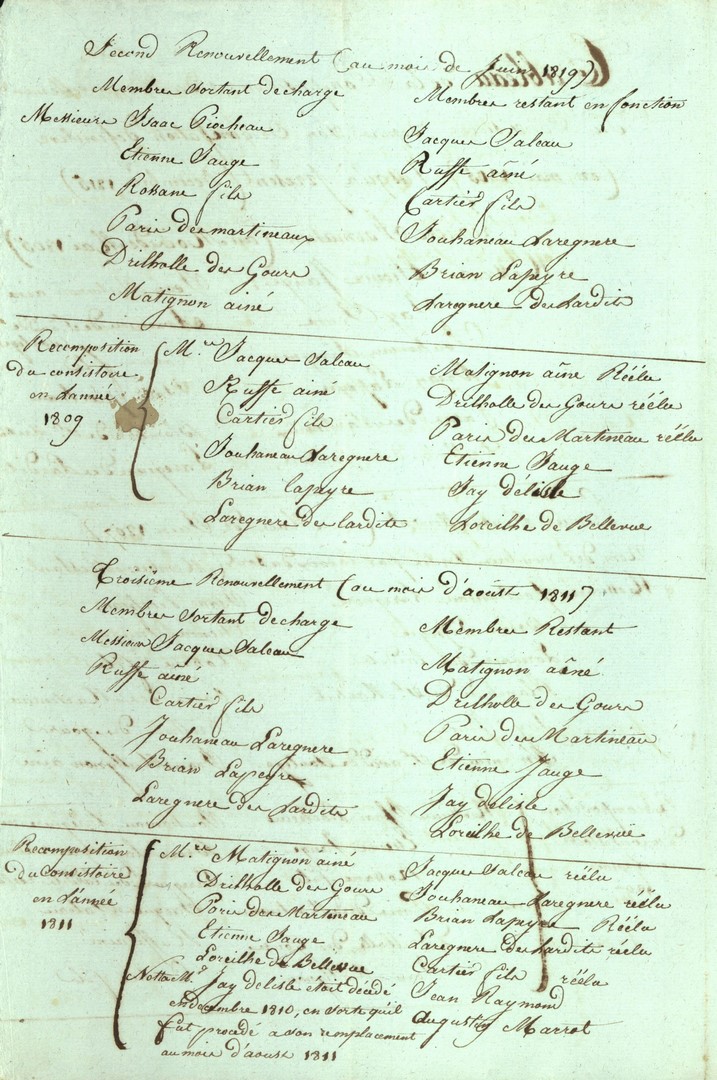 Second Renouvellement (au mois de Juin 1819)
Membres Sortant de charge
Messieurs Isaac Piocheau
Etienne Jauge
Roxane fils
Paris des martineaux
Drilholle des Gours
Matignon ainé
Membres restant en fonction
Jacques Saleau
Ruffe aîné
Cartier fils
Jouhaneau Laregnere
Brian Lapeyre
Laregnere des Lardite
Recomposition
du consistoire
en L'année
1809
M.rs Jacques Saleau
Ruffe ainé
Cartier fils
Jouhaneau Laregnere
Brian lapeyre
Laregnere des lardite
Matignon aîne Réélu
Drilholle des Gours réélu
Paris des Martineau réélu
Etienne Jauge
Jay délisle
Loreilhe de Bellevue
Troisième Renouvellement (au mois d'aoust 1811)
Membres Sortant de charge
Messieurs Jacques Saleau
Ruffe aîné
Cartier fils
Jouhaneau Laregnere
Brian Lapeyre
Laregnere des Lardite
Membres Restant
Matignon aîné
Drilholle des Gours
Paris des Martineau
Etienne Jauge
Jay delisle
Loreilhe de Bellevüe
Recomposition
du Consistoire
en L'année
1811
M.rs Matignon ainé
Drilholle des Gours
Paris des Martineau
Etienne Jauge
Loreilhe de Bellevue
Notta M.r Jay delisle étoit décédé
en décembre 1810, en sorte qu'il
fut procédé a son remplacement
au mois d'aoust 1811
Jacques Saleau réélu
Jouhaneau Laregnere réélu
Brian Lapeyre Réélu
Laregnere Des Lardite réélu
Cartier fils réélu
Jean Raymond
Augustin Marrot